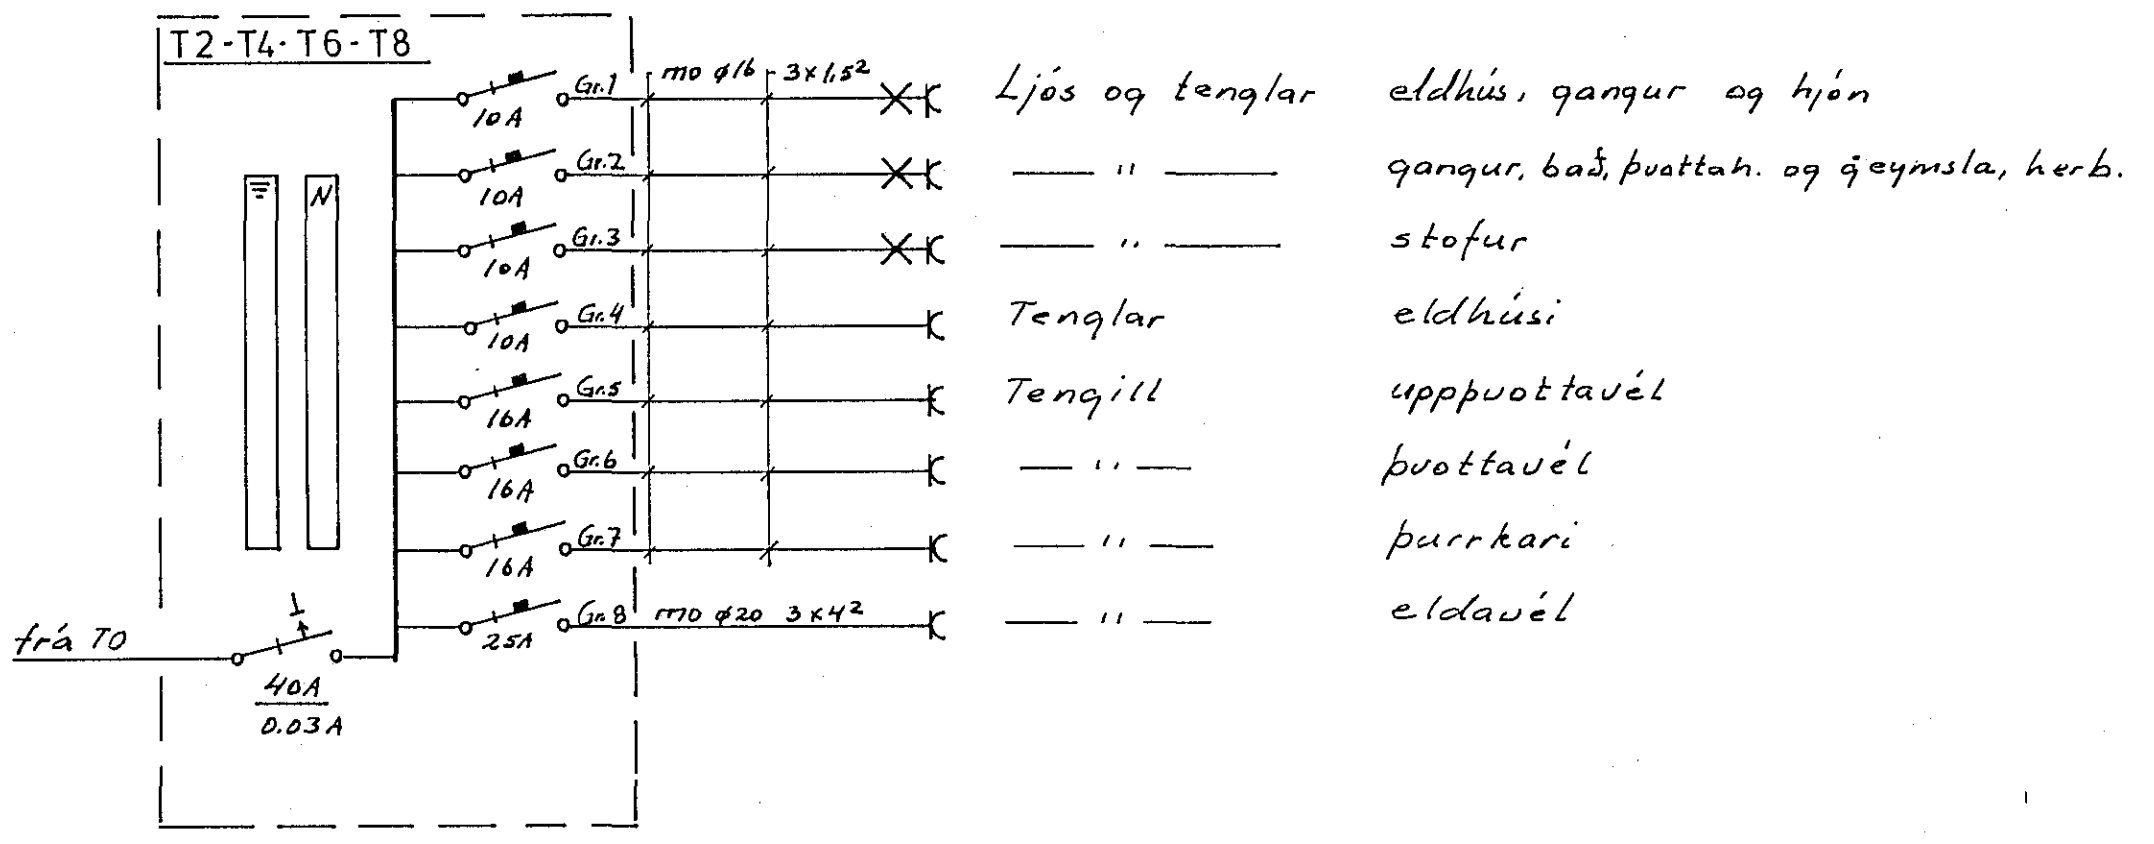 T2-T4-T6-T8
Gr.1 mo ø16 3x1,5² Ljós og tenglar eldhús, gangur og hjón
10A
Gr.2 — " — gangur, bað, þvottah. og geymsla, herb.
10A
N
Gr.3 — " — stofur
10A
Gr.4 Tenglar eldhúsi
10A
Gr.5 Tengill uppþvottavél
16A
Gr.6 — " — þvottavél
16A
Gr.7 — " — þurrkari
16A
Gr.8 mo ø20 3x4² — " — eldavél
25A
frá T0
40A
0.03A